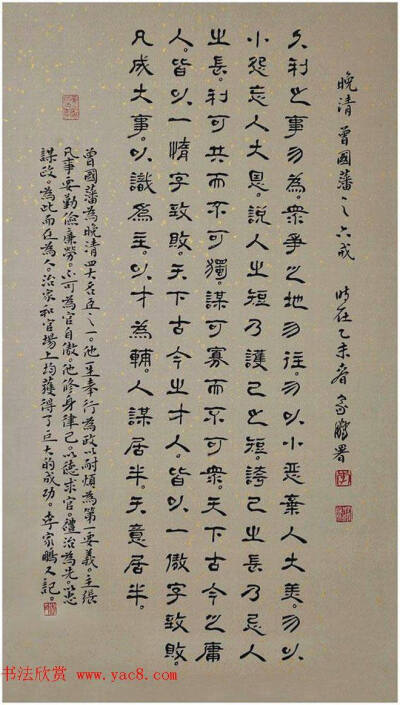 晚清 曾國藩之六戒 時在乙未春 家鵬署
久利之事勿為。眾爭之地勿往。勿以小惡棄人大美。勿以
小怨忘人大恩。說人之短乃護己之短。誇己之長乃忌人
之長。利可共而不可獨。謀可寡而不可眾。天下古今之庸
人。皆以一惰字致敗。天下古今之才人。皆以一傲字致敗。
凡成大事。以識為主。以才為輔。人謀居半。天意居半。
曾國藩為晚清四大名臣之一。他一生奉行為政以耐煩為第一要義。主張
凡事要勤儉廉勞。不可為官自傲。他修身律己以德求官。禮治為先。以忠
謀政。為此而在為人。治家和官場上均獲得了巨大的成功。李家鵬又記。
书法欣赏 www.yac8.com